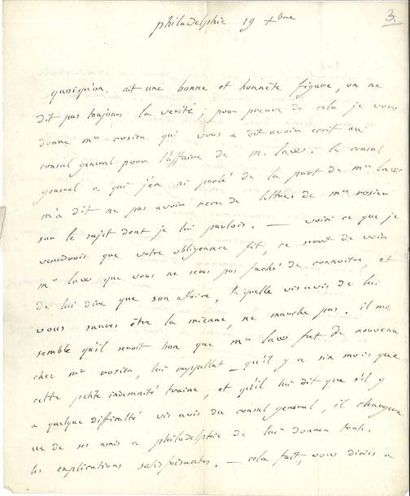 philadelphie 19 xbre
3.
quoiqu'on ait une bonne et honnête figure, on ne
dit pas toujours la verité; pour preuve de cela je vous
donne mr rosier qui vous a dit avoir ecrit au
consul general pour l'affaire de mr law. le consul
general a qui j'en ai parlé de la part de mr law
m'a dit ne pas avoir recu de lettres de mr rosier
sur le sujet dont je lui parlois. — voici ce que je
voudrois que votre obligeance fit, ce seroit de voir
mr law que vous ne serez pas faché de connoitre, et
de lui dire que son affaire, laquelle vis avis de lui
vous savez être la mienne, ne manche pas. il me
semble qu'il seroit bon que mr law fut de nouveau
chez mr rosier, lui qu'il y a six mois que
cette petite indemnité traine, et qu'il lui dit que s'il y
a quelque difficulté vis avis du consul general, il chargera
un de ses amis a philadelphie de lui donner toutes
les explications satisfaisantes. — cela fait, vous diriez a